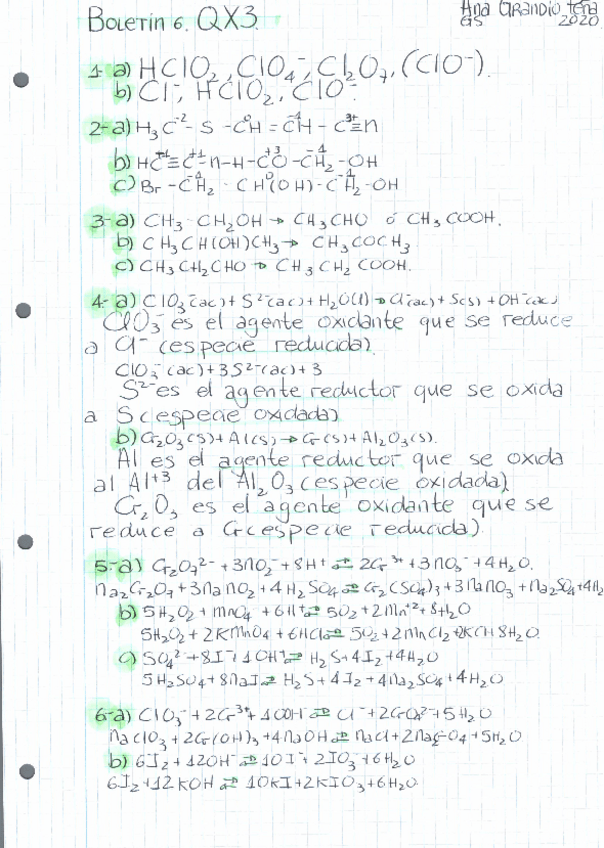 Boletín 6. QX3.
Ana Grandío Tena
2020
1-a) HClO2, ClO4⁻, Cl2O7, (ClO⁻).
b) Cl⁻, HClO2, ClO⁻.
2-a) H3C⁻² - S - C⁰H = C⁻¹H - C³⁺≡n
b) HC⁺¹≡C⁺¹-n-H-C⁺³O-C⁻¹H2-OH
c) Br-C⁻¹H2 - C⁰H(OH)-C⁻¹H2-OH
3-a) CH3-CH2OH → CH3CHO ó CH3COOH.
b) CH3CH(OH)CH3 → CH3COCH3
c) CH3CH2CHO → CH3CH2COOH.
4-a) ClO3⁻(ac) + S²⁻(ac) + H2O(l) → Cl⁻(ac) + S(s) + OH⁻(ac)
ClO3⁻ es el agente oxidante que se reduce
a Cl⁻ (especie reducida).
ClO3⁻(ac) + 3S²⁻(ac) + 3
S²⁻ es el agente reductor que se oxida
a S (especie oxidada)
b) Cr2O3(s) + Al(s) → Cr(s) + Al2O3(s).
Al es el agente reductor que se oxida
al Al⁺³ del Al2O3 (especie oxidada)
Cr2O3 es el agente oxidante que se
reduce a Cr (especie reducida).
5-a) Cr2O7²⁻ + 3NO2⁻ + 8H⁺ ⇄ 2Cr³⁺ + 3NO3⁻ + 4H2O.
Na2Cr2O7 + 3NaNO2 + 4H2SO4 ⇄ Cr2(SO4)3 + 3NaNO3 + Na2SO4 + 4H2
b) 5H2O2 + MnO4⁻ + 6H⁺ ⇄ 5O2 + 2Mn⁺² + 8H2O
5H2O2 + 2KMnO4 + 6HCl ⇄ 5O2 + 2MnCl2 + 2KCl + 8H2O
c) SO4²⁻ + 8I⁻ + 10H⁺ ⇄ H2S + 4I2 + 4H2O
5H2SO4 + 8NaI ⇄ H2S + 4I2 + 4Na2SO4 + 4H2O
6-a) ClO3⁻ + 2Cr³⁺ + 10OH⁻ ⇄ Cl⁻ + 2CrO4²⁻ + 5H2O
NaClO3 + 2Cr(OH)3 + 4NaOH ⇄ NaCl + 2Na2CrO4 + 5H2O
b) 6I2 + 12OH⁻ ⇄ 10I⁻ + 2IO3⁻ + 6H2O
6I2 + 12KOH ⇄ 10KI + 2KIO3 + 6H2O